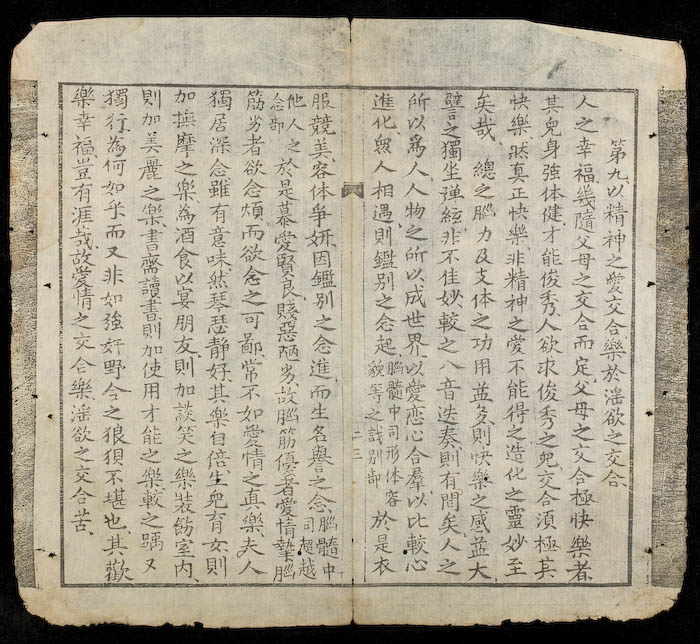 第九以精神之愛交合樂於淫欲之交合
人之幸福幾隨父母之交合而定父母之交合極快樂者
其兒身強体健才能俊秀人欲求俊秀之兒交合須極其
快樂然真正快樂非精神之愛不能得之造化之靈妙至
矣哉、總之腦力及支体之功用益多則快樂之感益大
譬之獨坐弹絃非不佳妙較之八音迭奏則有間矣人之
所以為人人物之所以成世界以愛恋心合羣以比較心
進化與人相遇則鑑别之念起腦髓中司形体容貌等之識别部於是衣
二三
服競美、容体爭妍、因鑑别之念進而生名譽之念、腦髓中司超越
他人之念部於是慕愛賢良賤惡陋劣、故腦筋優者愛情摯腦
筋劣者欲念煩而欲念之可鄙常不如愛情之真樂夫人
獨居深念雖有意味然琴瑟静好其樂自倍、生兒育女則
加撫摩之樂為酒食以宴朋友則加談笑之樂裝飾室内、
則加美麗之樂書齋讀書則加使用才能之樂較之踽又
獨行為何如乎而又非如強奸野合之狼狽不堪也其歡
樂幸福豈有涯哉故愛情之交合樂淫欲之交合苦、